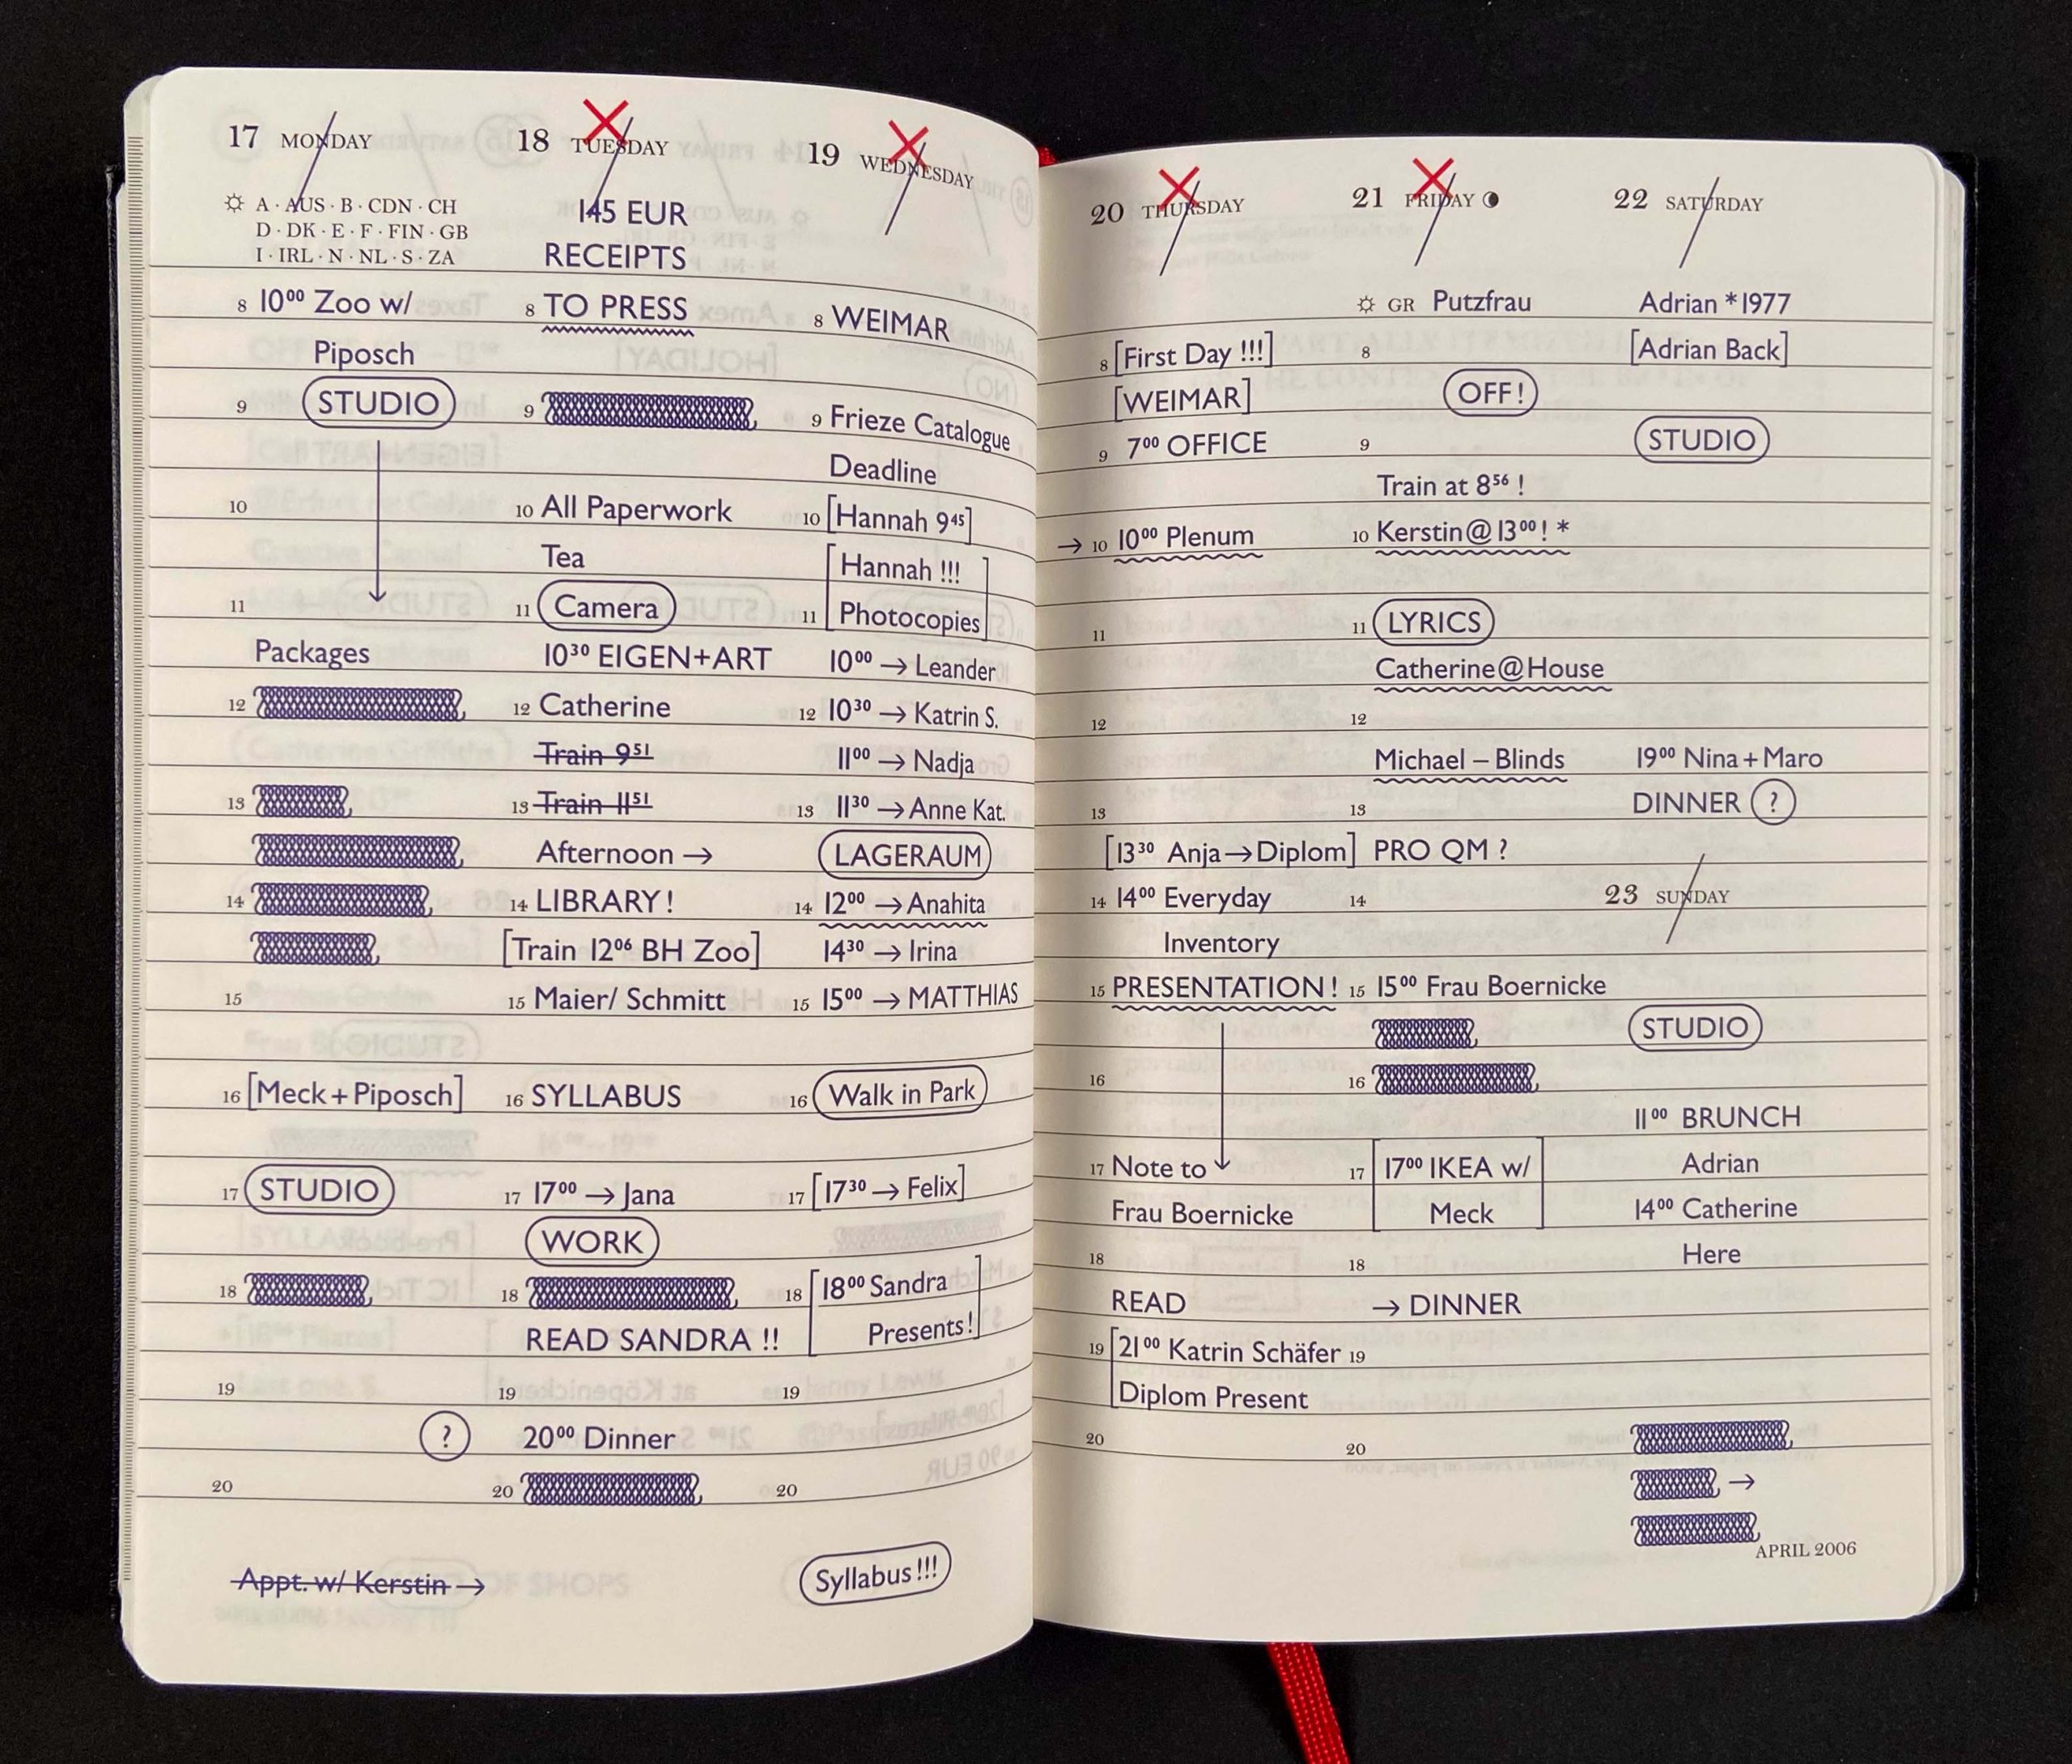 17 MONDAY
A · AUS · B · CDN · CH
D · DK · E · F · FIN · GB
I · IRL · N · NL · S · ZA
8 10⁰⁰ Zoo w/
Piposch
9 STUDIO
10
11
Packages
12
13
14
15
16 [Meck + Piposch]
17 STUDIO
18
19
?
20
Appt. w/ Kerstin →
18 TUESDAY
145 EUR
RECEIPTS
8 TO PRESS
9
10 All Paperwork
Tea
11 Camera
10³⁰ EIGEN+ART
12 Catherine
Train 9⁵¹
13 Train 11⁵¹
Afternoon →
14 LIBRARY!
[Train 12⁰⁶ BH Zoo]
15 Maier/ Schmitt
16 SYLLABUS
17 17⁰⁰ → Jana
WORK
18
READ SANDRA !!
19
20⁰⁰ Dinner
20
19 WEDNESDAY
8 WEIMAR
9 Frieze Catalogue
Deadline
10 [Hannah 9⁴⁵]
[Hannah !!!
11 Photocopies]
10⁰⁰ → Leander
12 10³⁰ → Katrin S.
11⁰⁰ → Nadja
13 11³⁰ → Anne Kat.
LAGERAUM
14 12⁰⁰ → Anahita
14³⁰ → Irina
15 15⁰⁰ → MATTHIAS
16 Walk in Park
17 [17³⁰ → Felix]
18 [18⁰⁰ Sandra
Presents!]
19
20
Syllabus !!!
20 THURSDAY
8 [First Day !!!]
[WEIMAR]
9 7⁰⁰ OFFICE
→ 10 10⁰⁰ Plenum
11
12
13
[13³⁰ Anja → Diplom]
14 14⁰⁰ Everyday
Inventory
15 PRESENTATION!
16
17 Note to
Frau Boernicke
18
READ
19 [21⁰⁰ Katrin Schäfer
Diplom Present
20
21 FRIDAY
GR Putzfrau
8
OFF!
9
Train at 8⁵⁶ !
10 Kerstin@13⁰⁰! *
11 LYRICS
Catherine@House
12
Michael – Blinds
13
PRO QM ?
14
15 15⁰⁰ Frau Boernicke
16
17 [17⁰⁰ IKEA w/
Meck]
18
→ DINNER
19
20
22 SATURDAY
Adrian *1977
[Adrian Back]
STUDIO
19⁰⁰ Nina + Maro
DINNER ?
23 SUNDAY
STUDIO
11⁰⁰ BRUNCH
Adrian
14⁰⁰ Catherine
Here
→
APRIL 2006